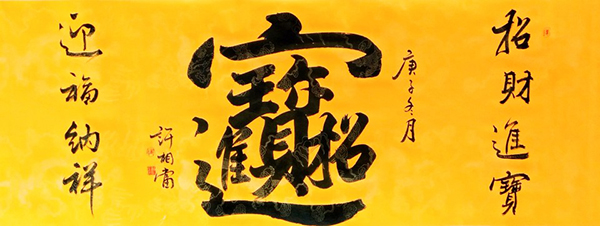 招財進寶
庚子冬月
招財進寶
許相
迎福納祥